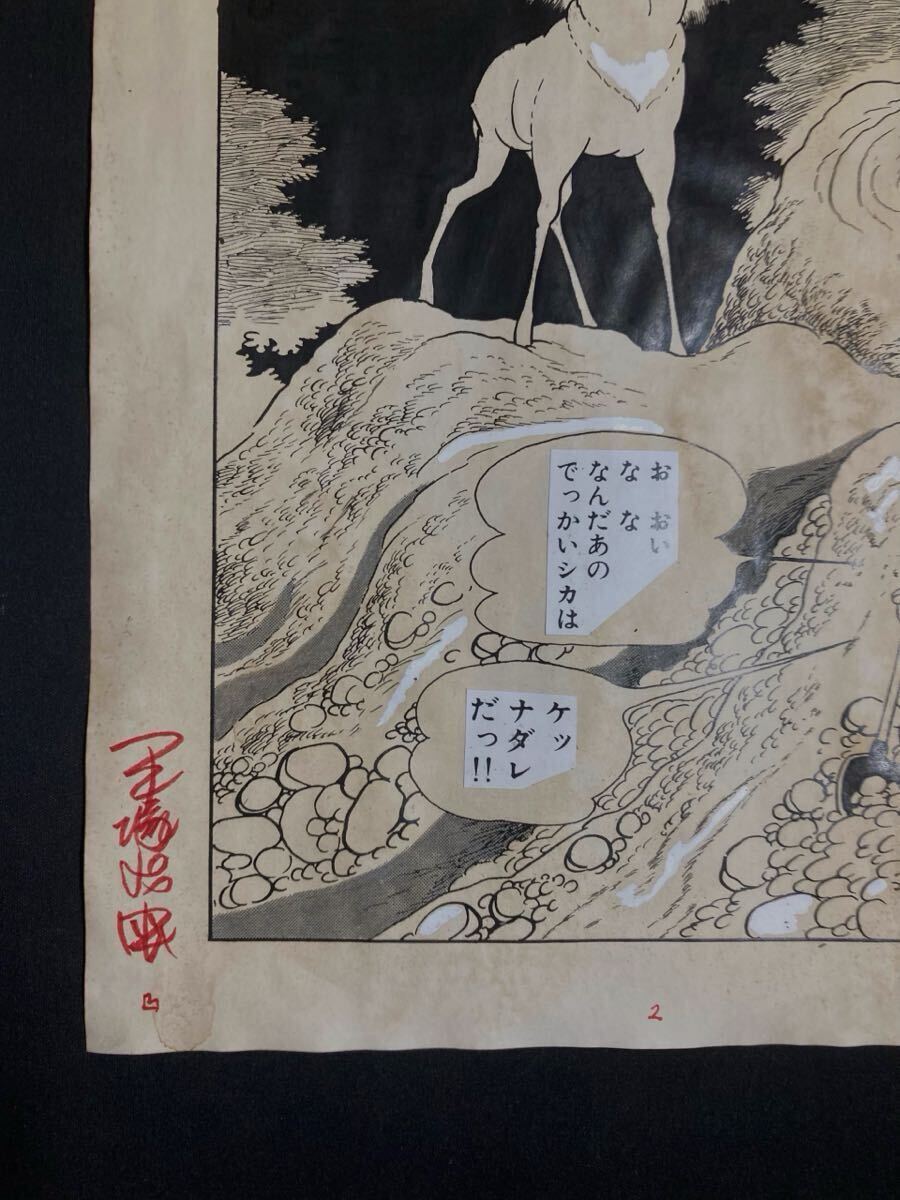 お おい
な な
なんだあの
でっかいシカは
ケッ
ナダレ
だっ!!
手塚治虫
2